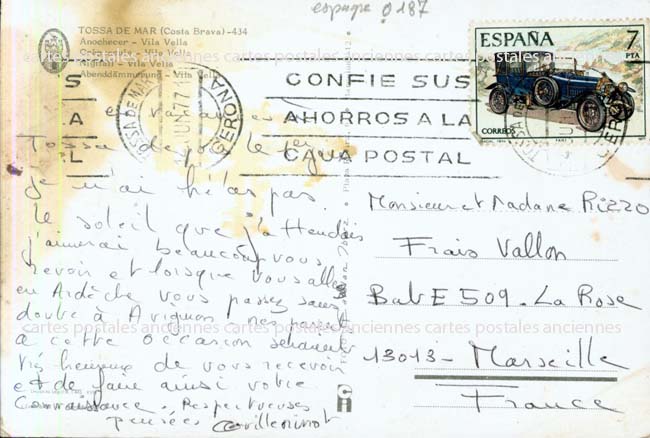 espagne 0187
TOSSA DE MAR (Costa Brava) -434
Anochecer - Vila Vella
Vila Vella
Vila Vella
Abenddämmerung - Vila Vella
TOSSA DE MAR
JUN 77
GERONA
CONFIE SUS
AHORROS A LA
CAJA POSTAL
S
A
L
ESPAÑA
7
PTA
CORREOS
en vacances
Tossa
je n'ai hélas pas
le soleil que j'attendais
j'aimerai beaucoup vous
revoir et lorsque vous allez
en Ardèche vous passez sans
doute à Avignon
à cette occasion
très heureux de vous recevoir
et de faire ainsi votre
connaissance. Respectueuses
pensées
Monsieur et Madame Rizzo
Frais Vallon
Bat E 509 - La Rose
13013 - Marseille
France
cartes postales anciennes cartes postales anciennes
cartes postales anciennes cartes postales anciennes